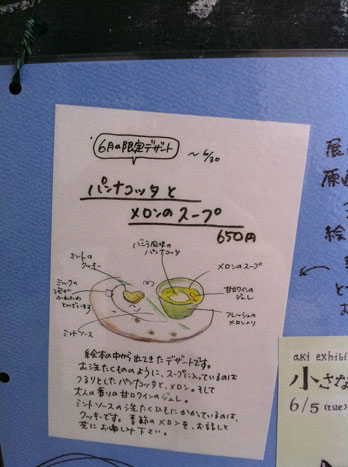 6月の限定デザート
～6/30
パンナコッタと
メロンのスープ
650円
バニラ風味の
パンナコッタ
ミントの
クッキー
メロンのスープ
ミルクの
泡が
ふわふわ
とんでいます
甘口ワインの
ジュレ
フレッシュの
メロン入り
ミントソース
絵本の中から出てきたデザートです。
スープに入っているのは
つるりとしたパンナコッタと、メロン。そして
大人の香りの甘口ワインのジュレ。
ミントソースの
かかっているのは、
クッキーです。季節のメロンを、お話しと
共にお楽しみ下さい。
展
原画
絵
aki exhibi
小さな
6/5 (tue)